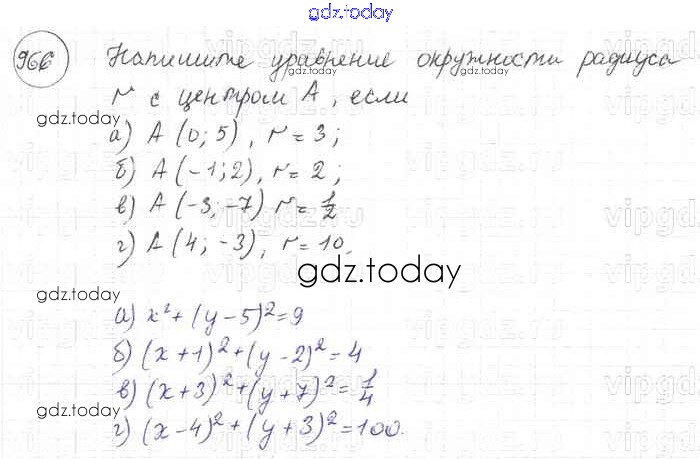 gdz.today
966 Напишите уравнение окружности радиуса
gdz.today
r с центром A, если
gdz.today
а) A (0; 5), r = 3;
б) A (-1; 2), r = 2;
gdz.today
в) A (-3; -7) r = 1/2
г) A (4; -3), r = 10.
gdz.today
gdz.today
а) x² + (y - 5)² = 9
б) (x + 1)² + (y - 2)² = 4
в) (x + 3)² + (y + 7)² = 1/4
gdz.today
г) (x - 4)² + (y + 3)² = 100.